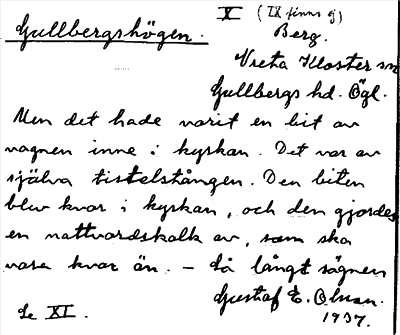 X (IX finns ej)
Gullbergshögen.
Berg.
Vreta Kloster sn
Gullbergs hd. Ögl.
Men det hade varit en bit av
vagnen inne i kyrkan. Det var av
själva tistelstången. Den biten
blev kvar i kyrkan, och den gjordes
en nattvardskalk av, som ska
vara kvar än. — Så långt sägnen
Gustaf E. Olsson.
1937.
Se XI.